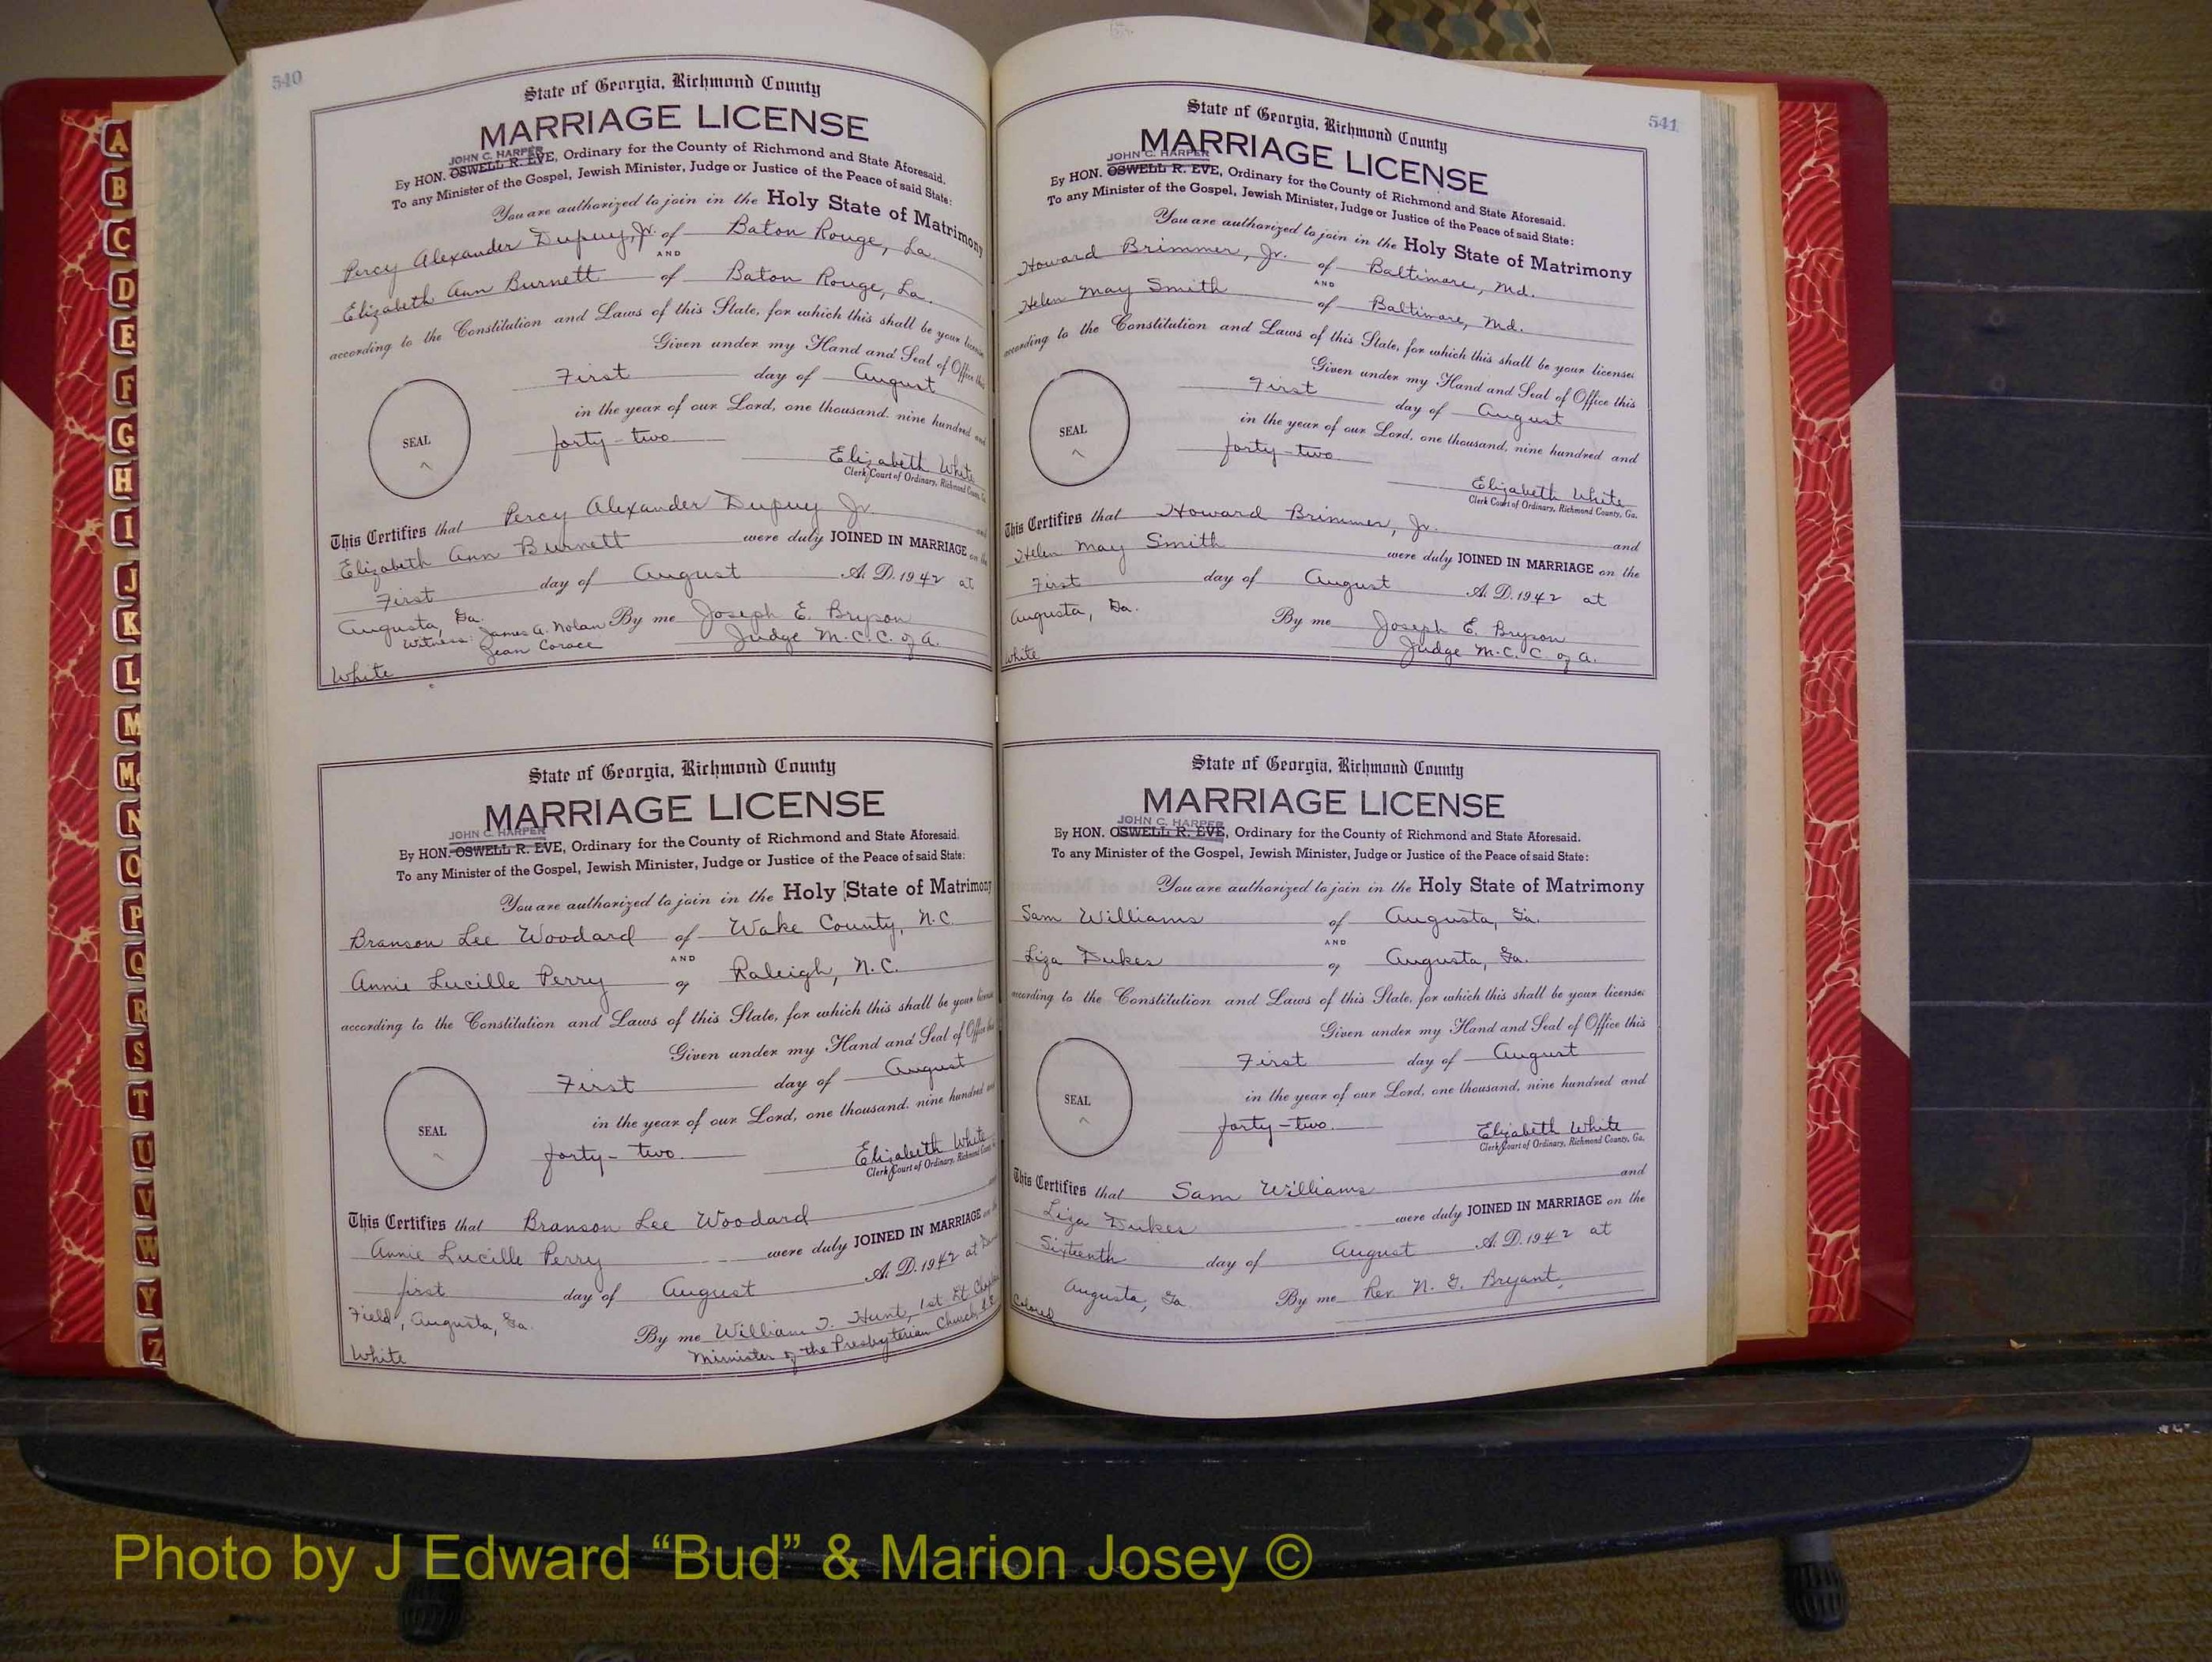 540
State of Georgia, Richmond County
MARRIAGE LICENSE
JOHN C. HARPER
By HON. OSWELL R. EVE, Ordinary for the County of Richmond and State Aforesaid.
To any Minister of the Gospel, Jewish Minister, Judge or Justice of the Peace of said State:
You are authorized to join in the Holy State of Matrimony
Percy Alexander Dupuy, Jr. of Baton Rouge, La.
AND
Elizabeth Ann Burnett of Baton Rouge, La.
according to the Constitution and Laws of this State, for which this shall be your license
Given under my Hand and Seal of Office this
First day of August
in the year of our Lord, one thousand, nine hundred and
SEAL
forty-two
Elizabeth White
Clerk Court of Ordinary, Richmond County, Ga.
This Certifies that Percy Alexander Dupuy Jr. and
Elizabeth Ann Burnett were duly JOINED IN MARRIAGE on the
First day of August A. D. 1942 at
Augusta, Ga. By me Joseph E. Bryson
Witness: James A. Nolan Judge M.C.C. of A.
Jean Corace
White
State of Georgia, Richmond County
MARRIAGE LICENSE
JOHN C. HARPER
By HON. OSWELL R. EVE, Ordinary for the County of Richmond and State Aforesaid.
To any Minister of the Gospel, Jewish Minister, Judge or Justice of the Peace of said State:
You are authorized to join in the Holy State of Matrimony
Branson Lee Woodard of Wake County, N.C.
AND
Annie Lucille Perry of Raleigh, N.C.
according to the Constitution and Laws of this State, for which this shall be your license
Given under my Hand and Seal of Office this
First day of August
in the year of our Lord, one thousand, nine hundred and
SEAL
forty-two
Elizabeth White
Clerk Court of Ordinary, Richmond County
This Certifies that Branson Lee Woodard and
Annie Lucille Perry were duly JOINED IN MARRIAGE on the
first day of August A. D. 1942 at
Field, Augusta, Ga.
By me William T. Hunt, 1st Lt Chaplain
Minister of the Presbyterian Church
White
541
State of Georgia, Richmond County
MARRIAGE LICENSE
JOHN C. HARPER
By HON. OSWELL R. EVE, Ordinary for the County of Richmond and State Aforesaid.
To any Minister of the Gospel, Jewish Minister, Judge or Justice of the Peace of said State:
You are authorized to join in the Holy State of Matrimony
Howard Brimmer, Jr. of Baltimore, Md.
AND
Helen May Smith of Baltimore, Md.
according to the Constitution and Laws of this State, for which this shall be your license:
Given under my Hand and Seal of Office this
First day of August
in the year of our Lord, one thousand, nine hundred and
SEAL
forty-two
Elizabeth White
Clerk Court of Ordinary, Richmond County, Ga.
This Certifies that Howard Brimmer, Jr. and
Helen May Smith were duly JOINED IN MARRIAGE on the
First day of August A. D. 1942 at
Augusta, Ga. By me Joseph E. Bryson
Judge M.C.C. of A.
White
State of Georgia, Richmond County
MARRIAGE LICENSE
JOHN C. HARPER
By HON. OSWELL R. EVE, Ordinary for the County of Richmond and State Aforesaid.
To any Minister of the Gospel, Jewish Minister, Judge or Justice of the Peace of said State:
You are authorized to join in the Holy State of Matrimony
Sam Williams of Augusta, Ga.
AND
Liza Dukes of Augusta, Ga.
according to the Constitution and Laws of this State, for which this shall be your license:
Given under my Hand and Seal of Office this
First day of August
in the year of our Lord, one thousand, nine hundred and
SEAL
forty-two.
Elizabeth White
Clerk Court of Ordinary, Richmond County, Ga.
This Certifies that Sam Williams and
Liza Dukes were duly JOINED IN MARRIAGE on the
Sixteenth day of August A. D. 1942 at
Augusta, Ga By me Rev. N. G. Bryant,
Colored
A
B
C
D
E
F
G
H
I
J
K
L
M
Mc
N
O
P
Q
R
S
T
U
V
W
Y
Z
Photo by J Edward “Bud” & Marion Josey ©